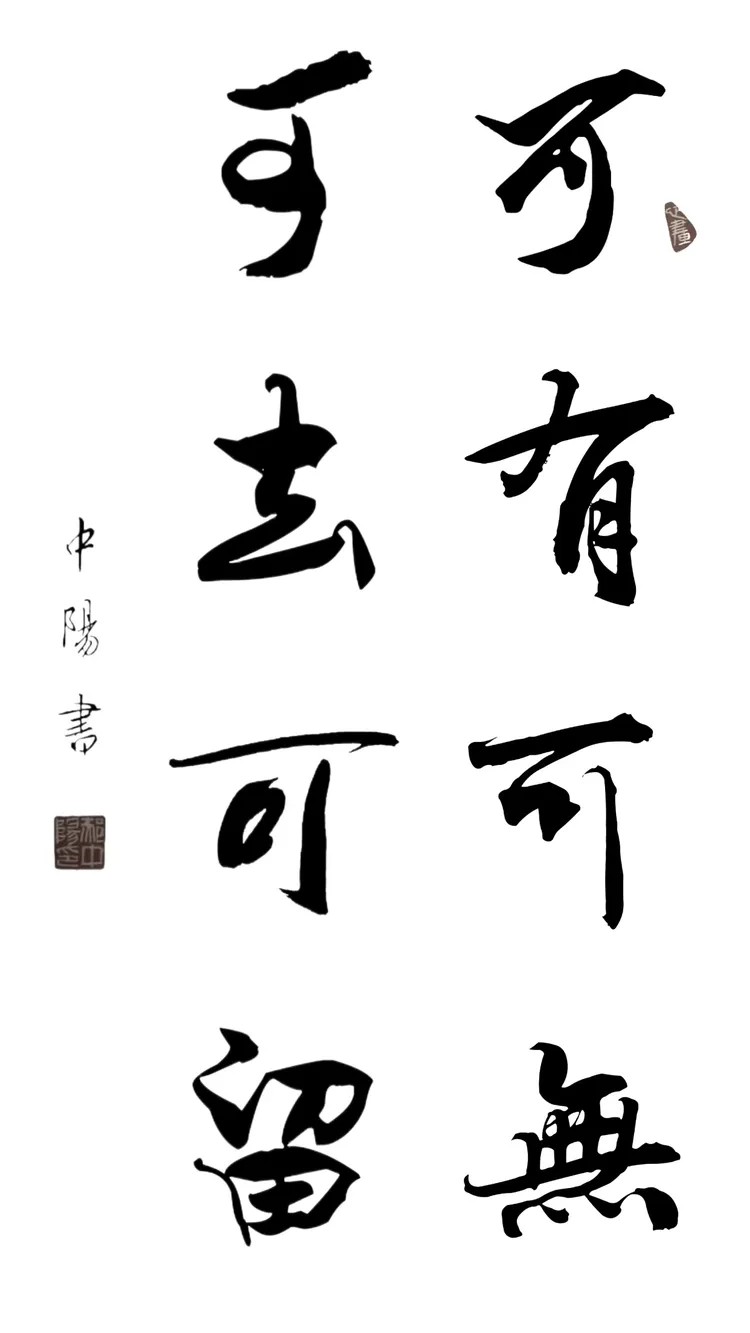 可有可無
可去可留
中陽書